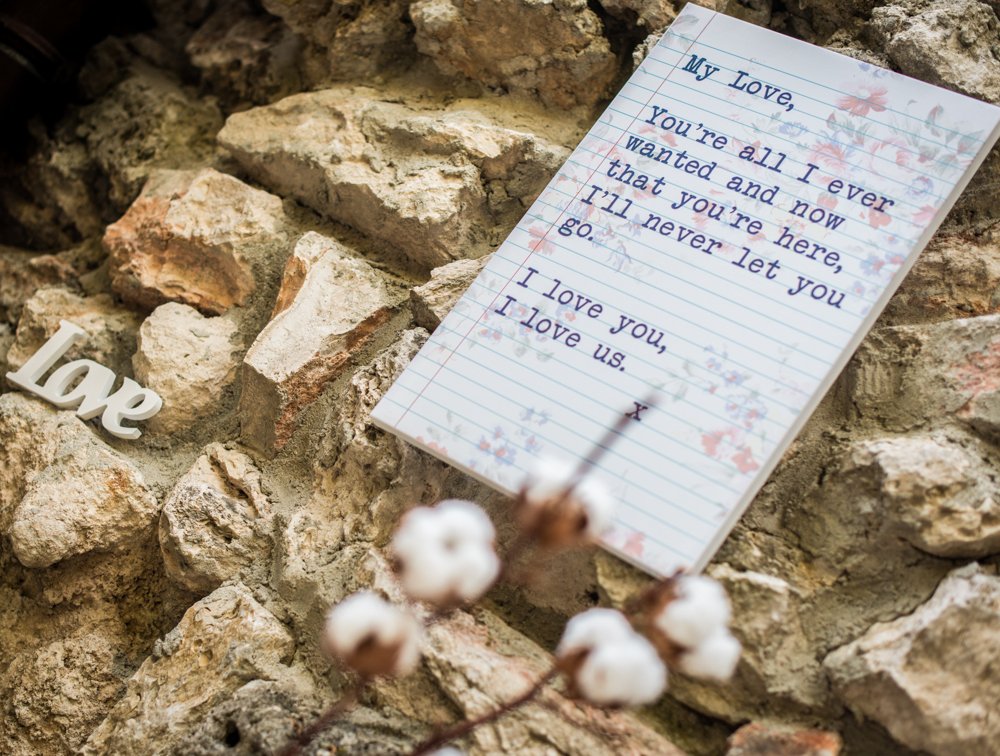 My Love,
You're all I ever
wanted and now
that you're here,
I'll never let you
go.
I love you,
I love us.
x
Love